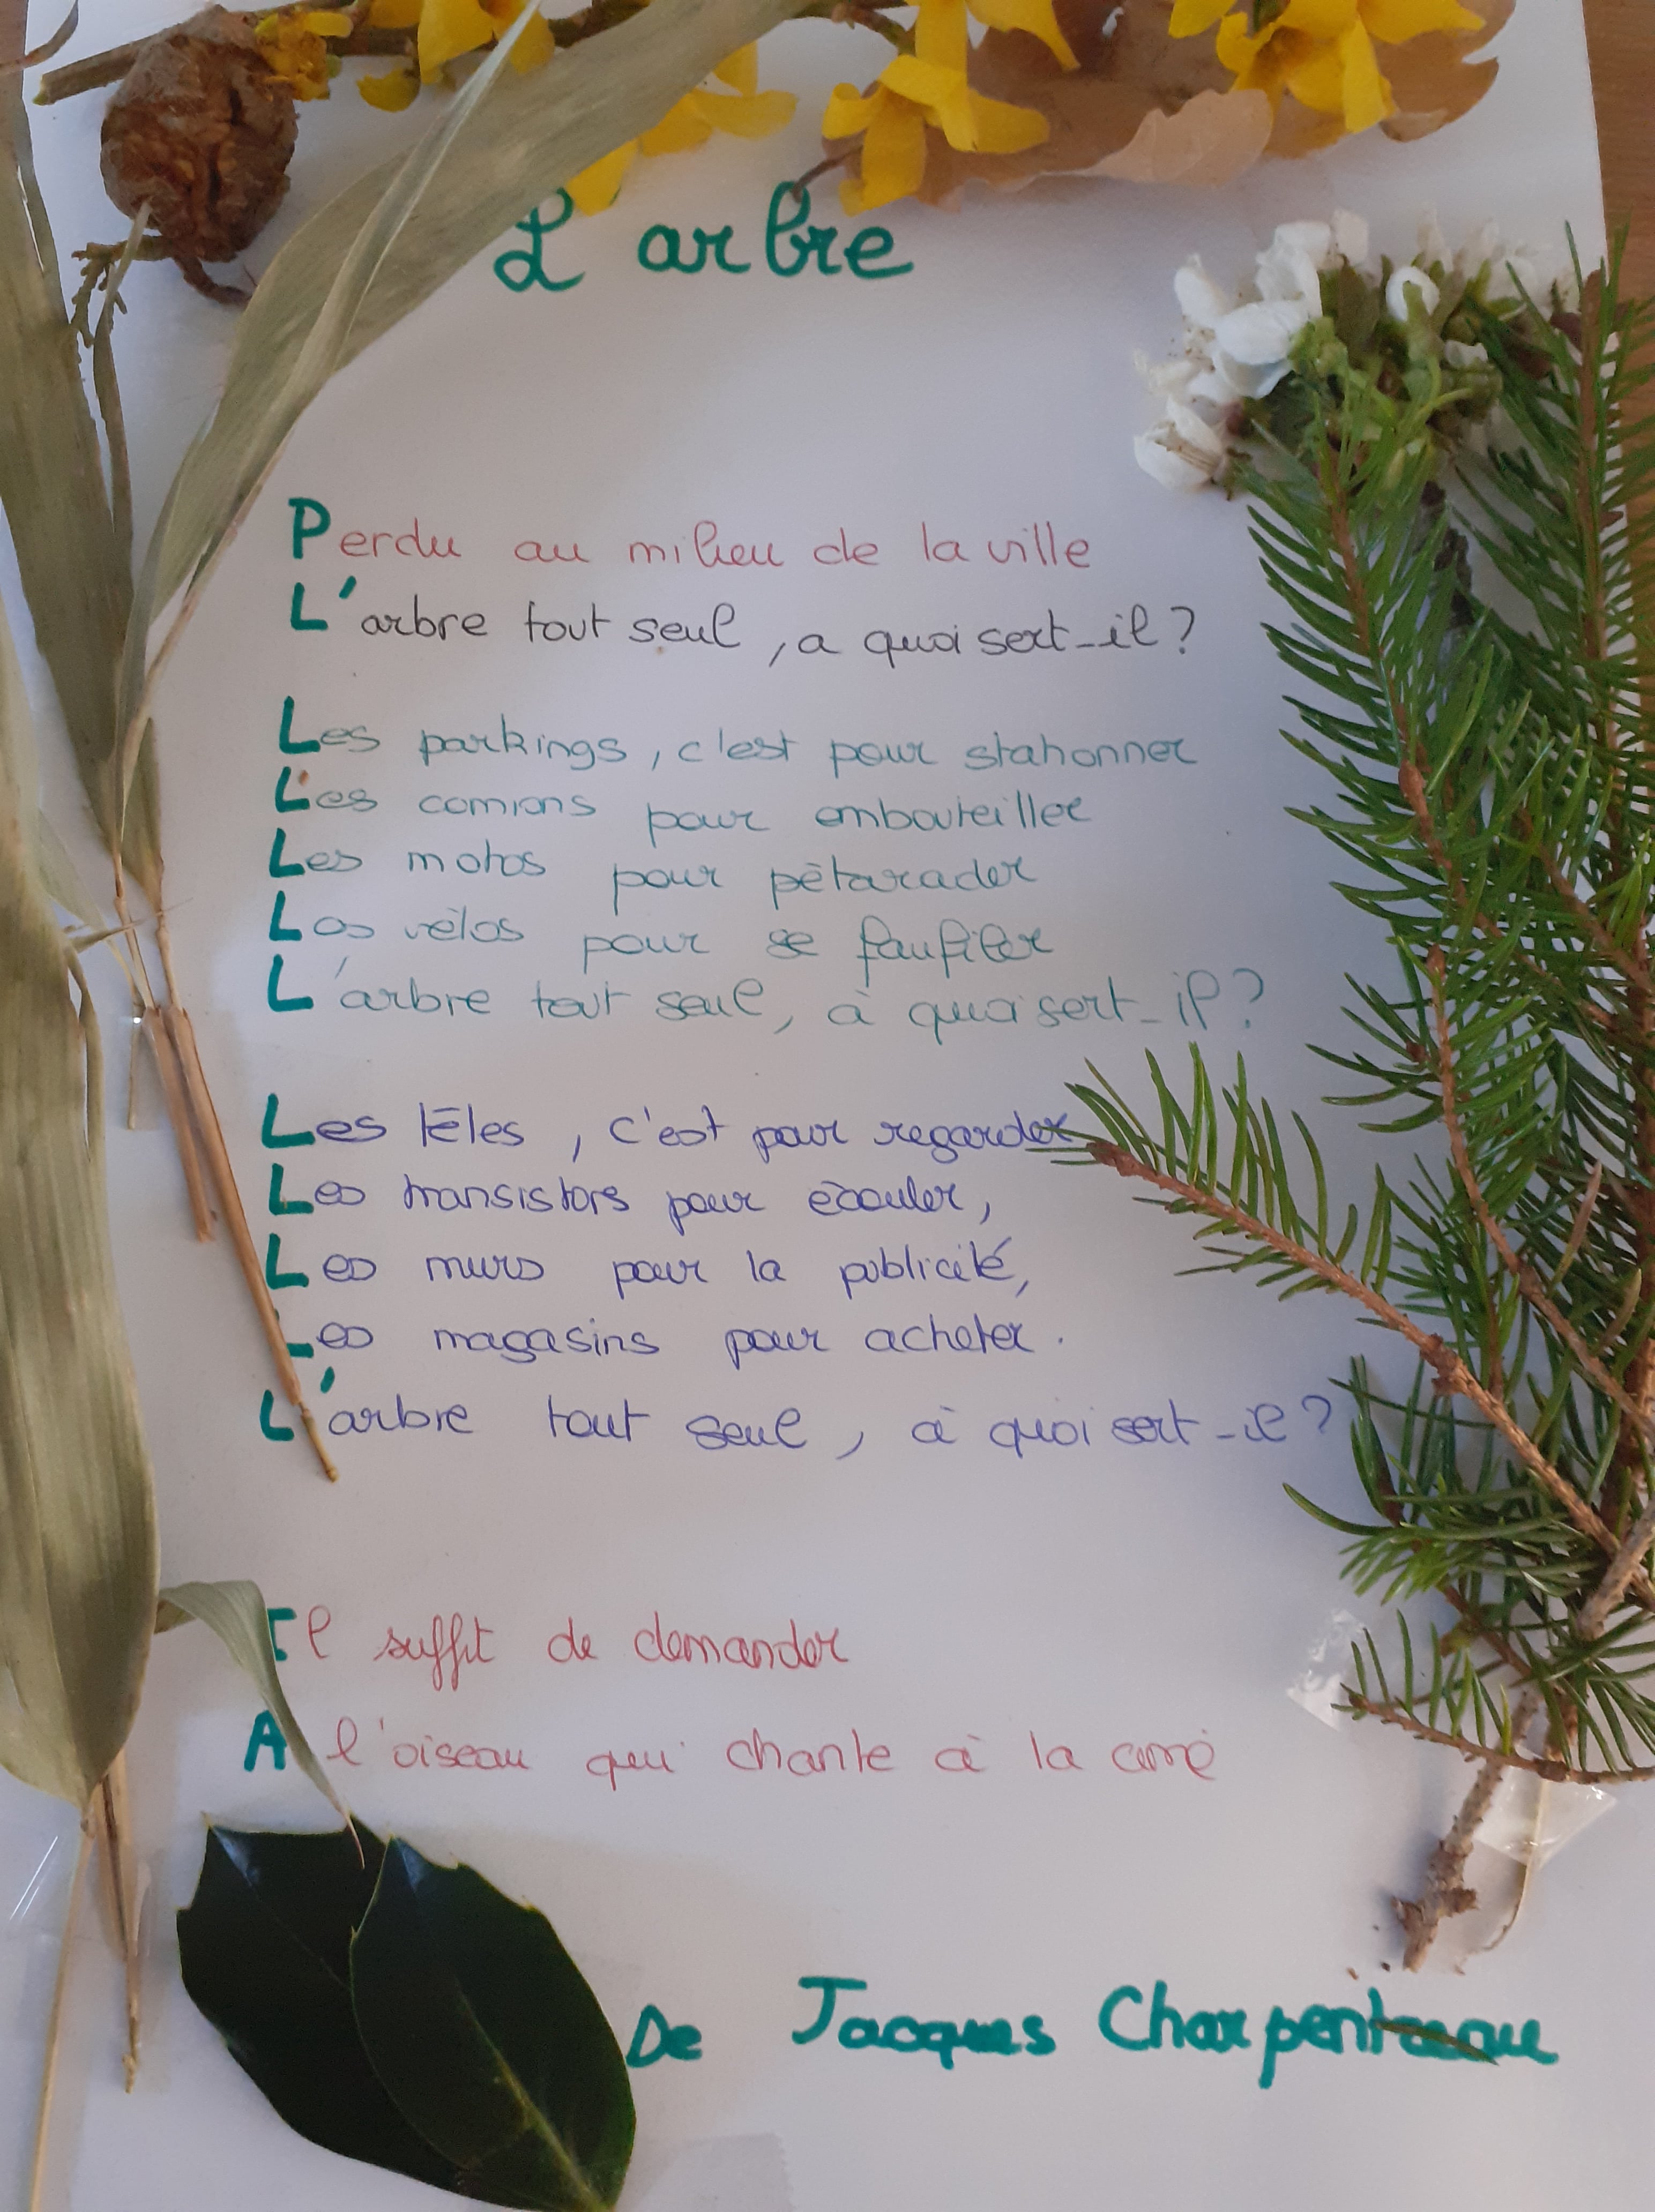 L'arbre
Perdu au milieu de la ville
L'arbre tout seul, a quoi sert-il?
Les parkings, c'est pour stationner
Les camions pour embouteiller
Les motos pour pétarader
Les vélos pour se faufiler
L'arbre tout seul, à quoi sert-il?
Les télés, c'est pour regarder
Les transistors pour écouter,
Les murs pour la publicité,
Les magasins pour acheter.
L'arbre tout seul, à quoi sert-il?
Il suffit de demander
A l'oiseau qui chante à la cime
De Jacques Charpentreau